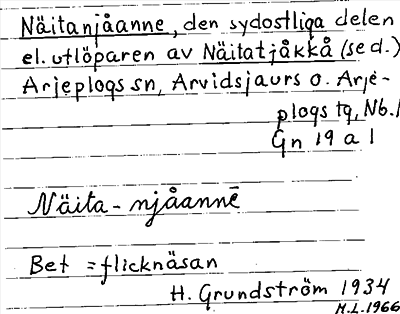 Näitanjåanne, den sydostliga delen
el. utlöparen av Näitatjåkkå (se d.)
Arjeplogs sn, Arvidsjaurs o. Arje-
plogs tg, Nb.l
Gn 19 a 1
Näita-njåannē
Bet = flicknäsan
H. Grundström 1934
M.L. 1966